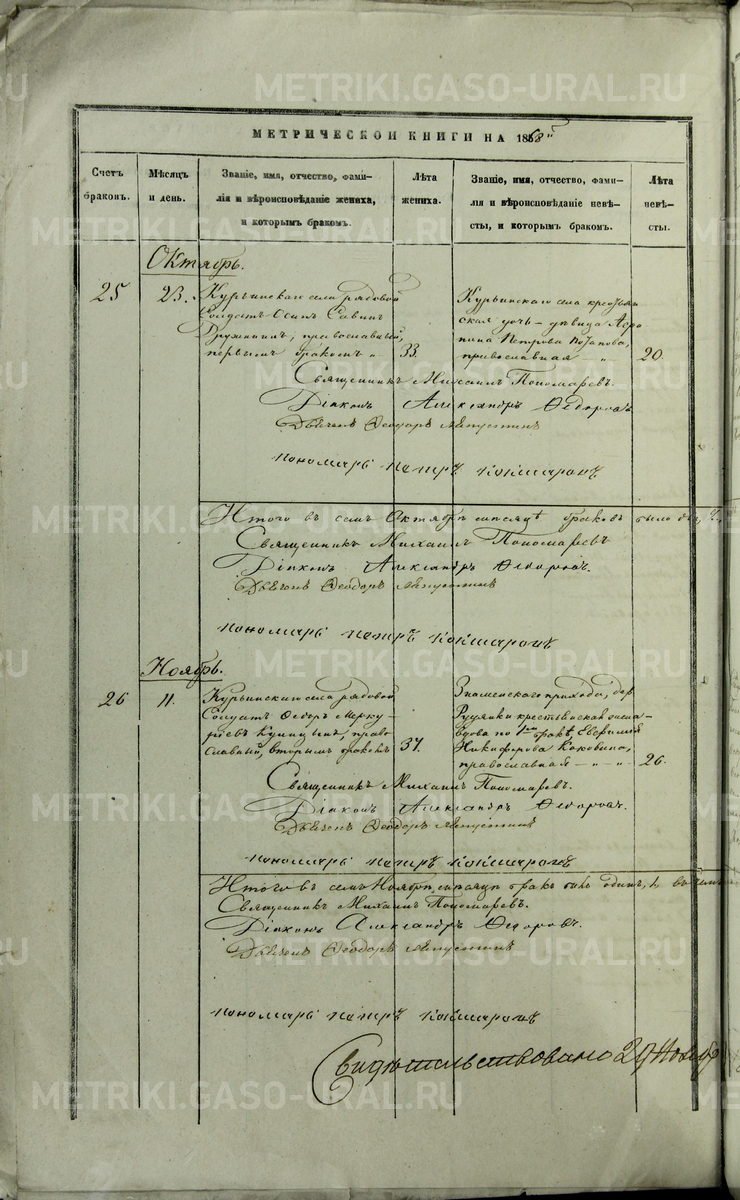 МЕТРИЧЕСКОЙ КНИГИ НА 1868й
Счетъ браковъ.
Мѣсяцъ и день.
Званіе, имя, отчество, фами-
лія и вѣроисповѣданіе жениха,
и которымъ бракомъ.
Лѣта жениха.
Званіе, имя, отчество, фами-
лія и вѣроисповѣданіе невѣ-
сты, и которымъ бракомъ.
Лѣта невѣ-
сты.
Октябрь.
25
23.
Курьинскаго села рядовой
Солдатъ Осипъ Савинъ
Дружининъ, православный,
первымъ бракомъ "
33.
Курьинскаго села крестьян
ская дочь – дѣвица Агро
пина Петрова Потапова,
православная "
20.
Священникъ Михаилъ Пономаревъ.
Діаконъ Александръ Ѳедоровъ
Дьячекъ Ѳеодоръ
пономарь петръ Кокшаровъ
Итого въ семъ Октябрѣ мѣсяцѣ браковъ было
Священникъ Михаилъ Пономаревъ
Діаконъ Александръ Ѳедоровъ.
Дьячекъ Ѳеодоръ
пономарь петръ Кокшаровъ
Ноябрь.
26
11.
Курьинскаго села рядовой
Солдатъ Ѳедоръ Мерку-
рьевъ Купцынъ, право
славный, вторымъ бракомъ
37.
Знаменскаго прихода, дер
Рудянки крестьянская жена
вдова по 1мъ бракѣ Евфимія
Никифорова Коковина,
православная – " – "
26.
Священникъ Михаилъ Пономаревъ.
Діаконъ Александръ Ѳедоровъ.
Дьячекъ Ѳеодоръ
пономарь петръ Кокшаровъ
Итого въ семъ Ноябрѣ мѣсяцѣ бракъ былъ одинъ, 1,
Священникъ Михаилъ Пономаревъ.
Діаконъ Александръ Ѳедоровъ.
Дьячекъ Ѳеодоръ
пономарь петръ Кокшаровъ
Свидѣтельствовано 29 Ноябр
METRIKI.GASO-URAL.RU